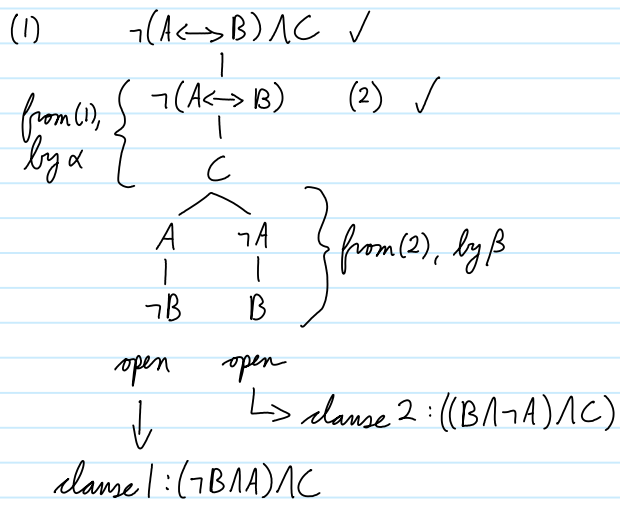 (1) ¬(A↔B)∧C ✓
from(1), ¬(A↔B) (2) ✓
by α
C
A ¬A from(2), by β
¬B B
open open
clause 2 : ((B∧¬A)∧C)
clause 1 : (¬B∧A)∧C